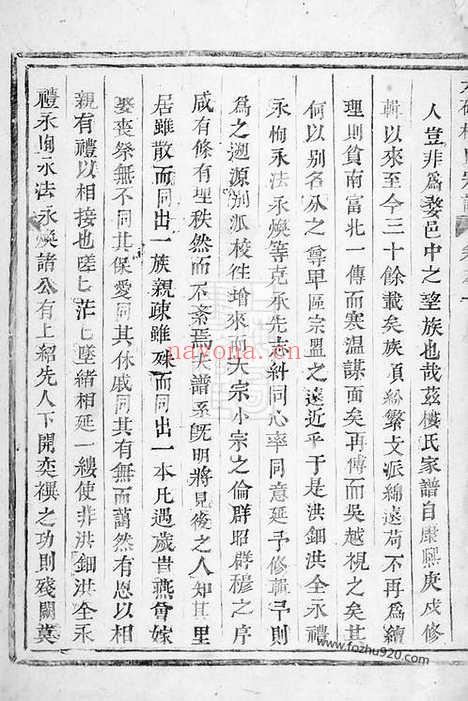 人豈非為婺邑中之望族也哉茲樓氏家譜自康熙庚戌修
輯以來至今三十餘載矣族項紛繁支派綿遠荷不再為續
理則貧南富北一傳而寒溫謀面矣再傳而吳越視之矣其
何以別名分之尊卑區宗盟之遠近乎于是洪鈿洪全永禮
永栒永法永煥等克承先志糾同心率同意延予修輯予則
為之遡源別派校往增來俾大宗小宗之倫群昭群穆之序
咸有條有理秩然而不紊焉夫譜系既明將見後之人知其里
居雖散而同出一族親疎雖殊而同出一本凡遇歲昔燕會嫁
娶喪祭無不同其保愛同其休戚同其有無而藹然有恩以相
親有禮以相接也嗟匕茫匕墜緒相延一縷使非洪鈿洪全永
禮永栒永法永煥諸公有上紹先人下開奕禩之功則殘闕莫
nayona.cn
www.fozhu920.com